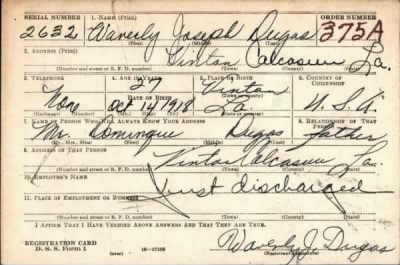 SERIAL NUMBER 1. NAME (Print) ORDER NUMBER
2632 Waverly Joseph Dugas 375A
(First) (Middle) (Last)
2. ADDRESS (Print)
Vinton Calcasieu La.
(Number and street or R. F. D. number) (Town) (County) (State)
3. TELEPHONE 4. AGE IN YEARS 5. PLACE OF BIRTH 6. COUNTRY OF CITIZENSHIP
27 Vinton
DATE OF BIRTH
None Oct 14 1918 La. U.S.A.
(Exchange) (Number) (Mo.) (Day) (Yr.) (State or country)
7. NAME OF PERSON WHO WILL ALWAYS KNOW YOUR ADDRESS 8. RELATIONSHIP OF THAT PERSON
Mr. Dominque Dugas Father
(Mr., Mrs., Miss) (First) (Middle) (Last)
9. ADDRESS OF THAT PERSON
Vinton Calcasieu La.
(Number and street or R. F. D. number) (Town) (County) (State)
10. EMPLOYER'S NAME
Just discharged
11. PLACE OF EMPLOYMENT OR BUSINESS
(Number and street or R. F. D. number) (Town) (County) (State)
I AFFIRM THAT I HAVE VERIFIED ABOVE ANSWERS AND THAT THEY ARE TRUE.
REGISTRATION CARD
D. S. S. Form 1 (over) 16-17105 Waverly J. Dugas